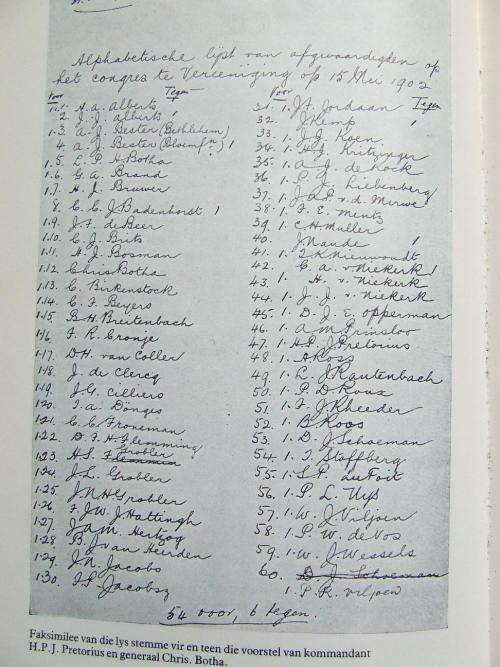 Alphabetische lijst van afgevaardigden op
het congres te Vereeniging op 15 Mei 1902
Voor Tegen
1. 1 H. A. Alberts
2. J. J. Alberts 1
1. 3 A. J. Bester (Bethlehem)
4 A J Bester (Bloemf n) 1
1. 5 L. P. H. Botha
1. 6. G A. Brand
1. 7. H. J. Bruwer
8. C. C. J Badenhorst 1
1. 9. J. F. de Beer
1. 10. C. J. Brits
1. 11. H. J. Bosman
1. 12. Chris Botha
1. 13. C. Birkenstock
1. 14. C. F Beyers
1. 15 B. H. Breitenbach
1. 16 F. R. Cronje
1. 17. D. H. van Coller
1. 18 J. de Clercq
1. 19. J. G. Cilliers
1. 20. T. A. Dönges
1. 21. C. C Froneman
1. 22. D. F. H. Flemming
1. 23. H. S. Grobler Flemmin
1. 24. J. L. Grobler
1. 25. J. N. H Grobler
1. 26. F. J. W. J Hattingh
1. 27. J A M. Hertzog
1. 28 B. J van Heerden
1. 29. J. N. Jacobs
1. 30. F. P. Jacobsz
Tegen
31. 1. J. F. Jordaan
32. J Kemp 1
33. 1. J. J. Koen
34. 1. H. J. Kritzinger
35. 1. A J. de Kock
36. 1. P. J. Liebenberg
37. 1. J. A. P. v. d. Merwe
38. 1. F. E. Mentz
39. 1. C H Muller
40. J Naude 1
41. 1. T. K Nieuwoudt
42. C. A. v Niekerk 1
43. 1. H. v. Niekerk
44. 1. J. J. v. Niekerk
45. 1. D. J. E. Opperman
46. 1. A M Prinsloo
47. 1. H. P. J. Pretorius
48. 1. A Ross
49. 1. L. J. Rautenbach
50. 1. P. D Roux
51. 1. F. J. Rheeder
52. 1. B. Roos
53. 1. D. J. Schoeman
54. 1. I. Stoffberg
55. 1. S. P. du Toit
56. 1. P. L. Uys
57. 1. W. J. Viljoen
58. 1. P. W. de Vos
59. 1. W. J. Wessels
60. D. J. Schoeman
1. P. R. Viljoen
54 voor, 6 tegen.
Faksimilee van die lys stemme vir en teen die voorstel van kommandant
H.P.J. Pretorius en generaal Chris. Botha.